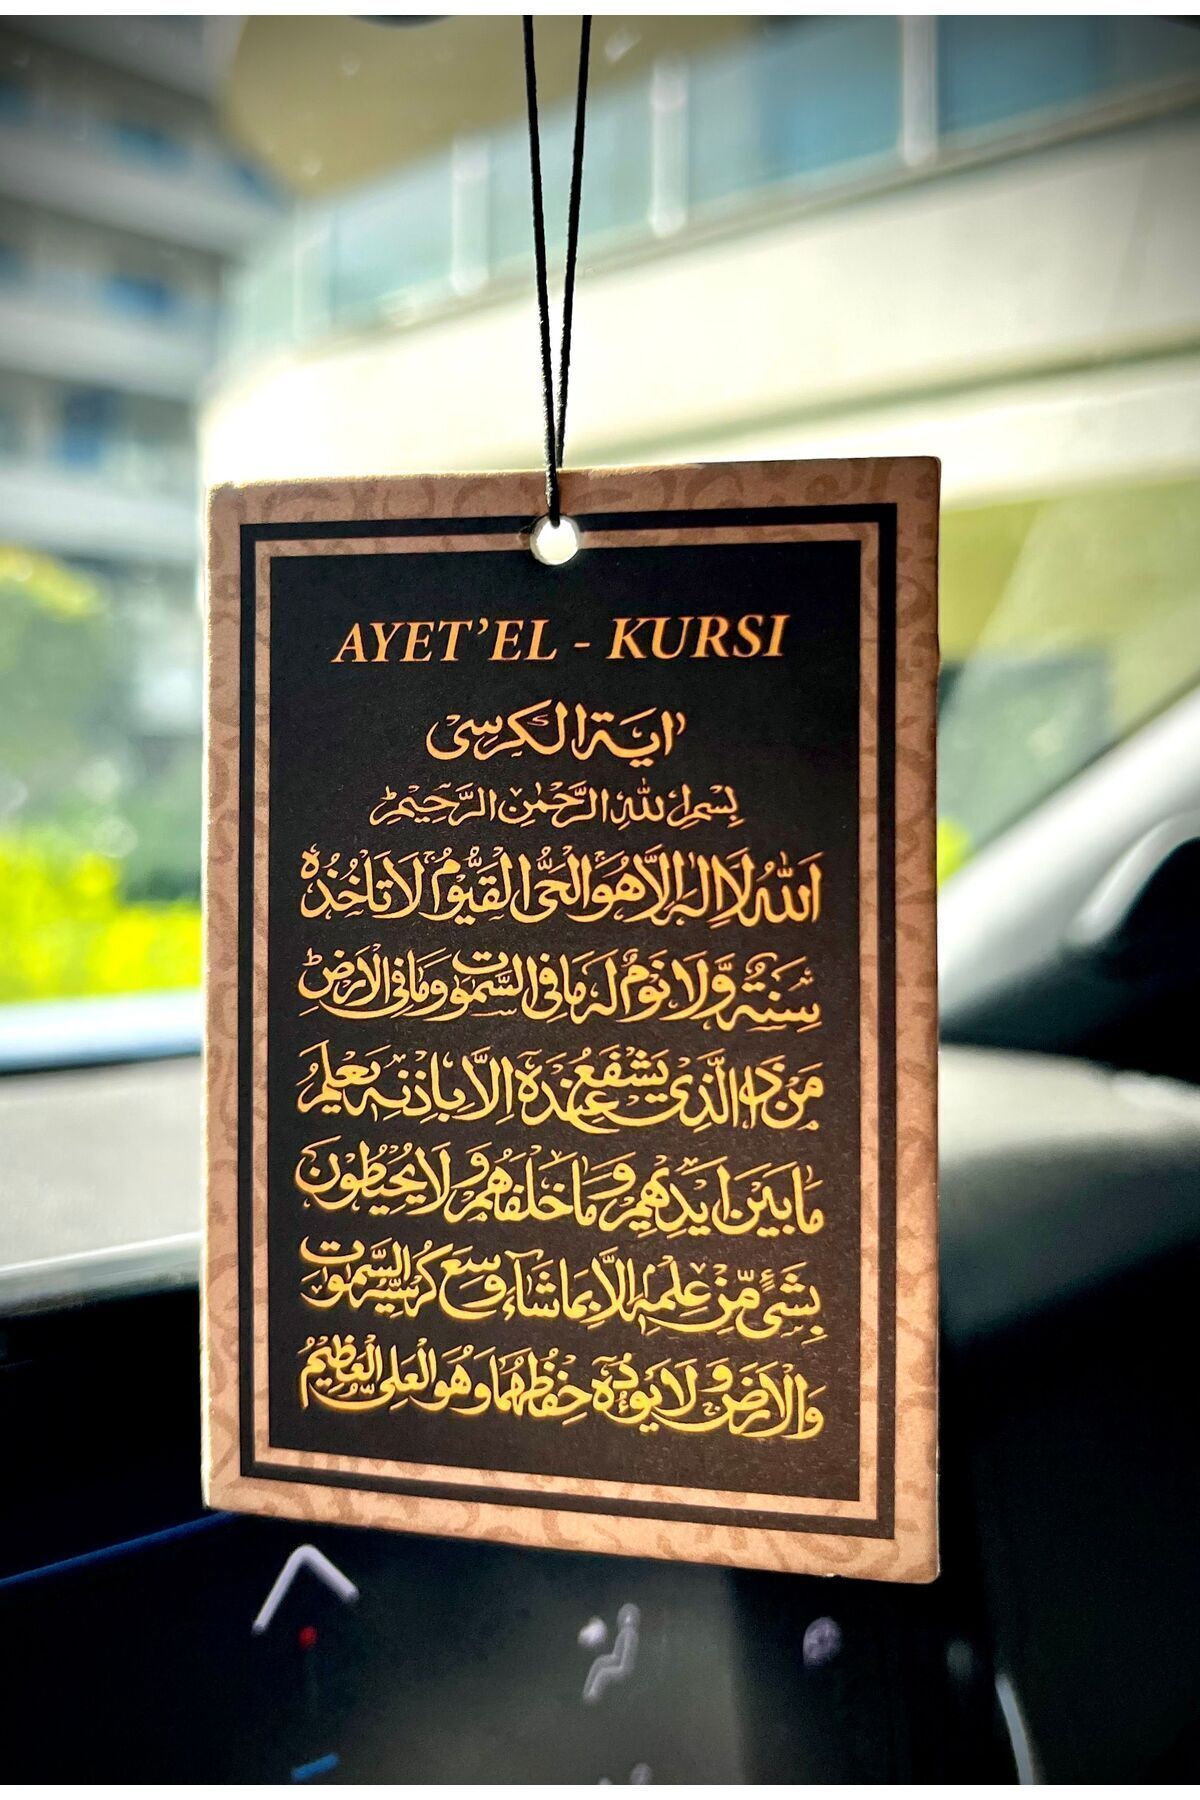 AYET'EL - KURSI
اٰيَةُ الْكُرْسِى
بِسْمِ اللهِ الرَّحْمٰنِ الرَّحِيْمِ
اَللهُ لَا اِلٰهَ اِلَّا هُوَ الْحَىُّ الْقَيُّوْمُ لَا تَاْخُذُهٗ
سِنَةٌ وَّلَا نَوْمٌ لَهٗ مَا فِى السَّمٰوٰتِ وَمَا فِى الْاَرْضِ
مَنْ ذَا الَّذِىْ يَشْفَعُ عِنْدَهٗ اِلَّا بِاِذْنِهٖ يَعْلَمُ
مَا بَيْنَ اَيْدِيْهِمْ وَمَا خَلْفَهُمْ وَلَا يُحِيْطُوْنَ
بِشَىْءٍ مِّنْ عِلْمِهٖ اِلَّا بِمَا شَاءَ وَسِعَ كُرْسِيُّهُ السَّمٰوٰتِ
وَالْاَرْضَ وَلَا يَؤُدُهٗ حِفْظُهُمَا وَهُوَ الْعَلِىُّ الْعَظِيْمُ